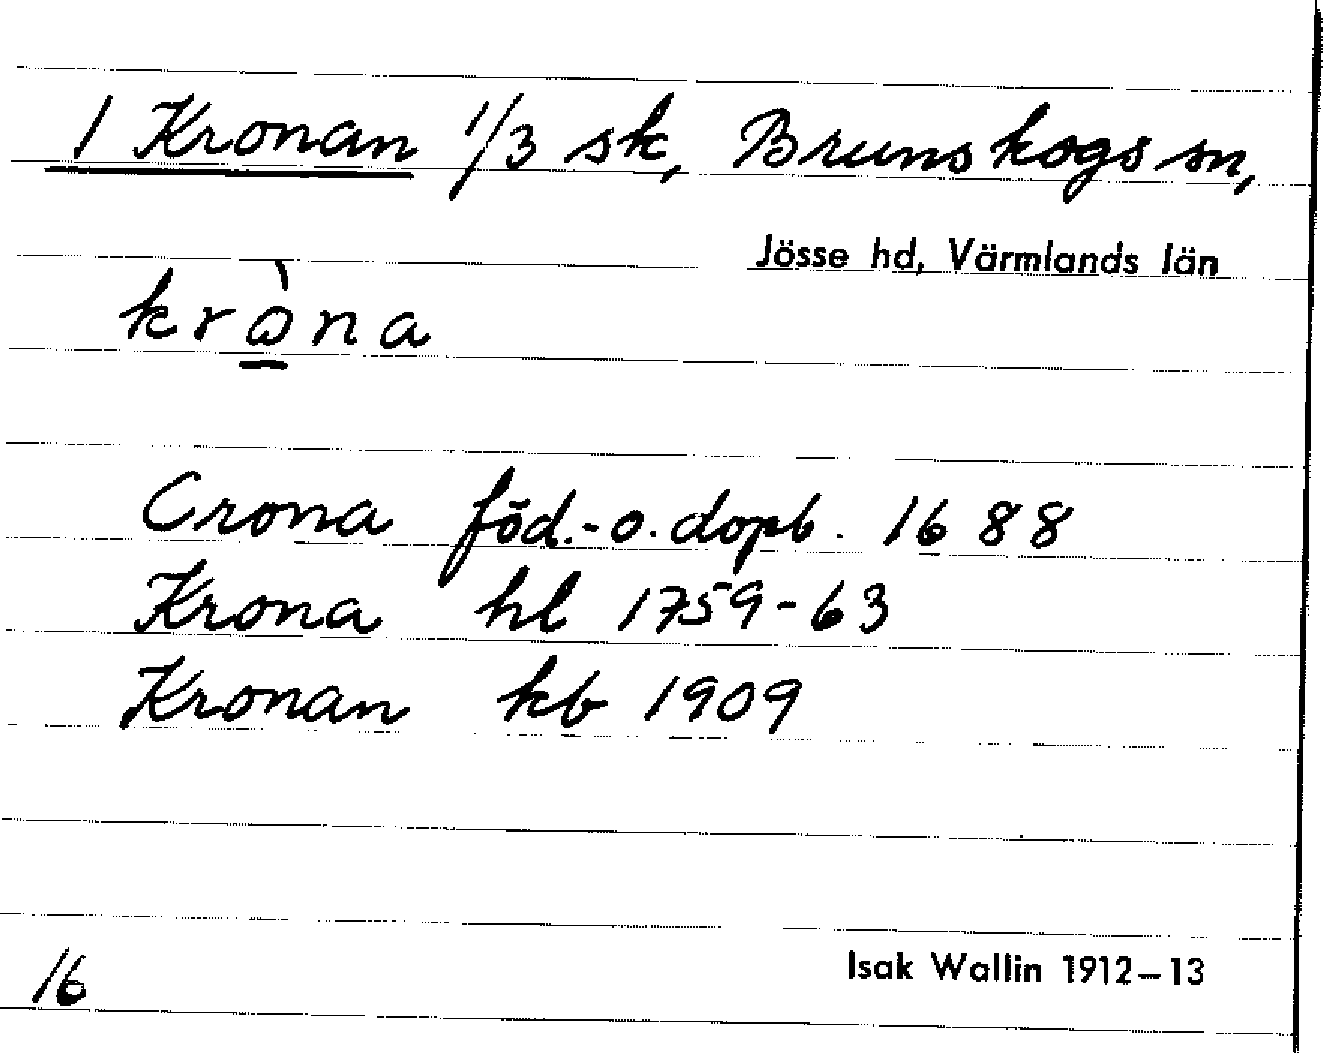 1 Kronan 1/3 sk, Brunskogs sn,
Jösse hd, Värmlands län
krὼ̲na
Crona föd.-o.dopb. 1688
Krona hl 1759-63
Kronan kb 1909
Isak Wallin 1912–13
16